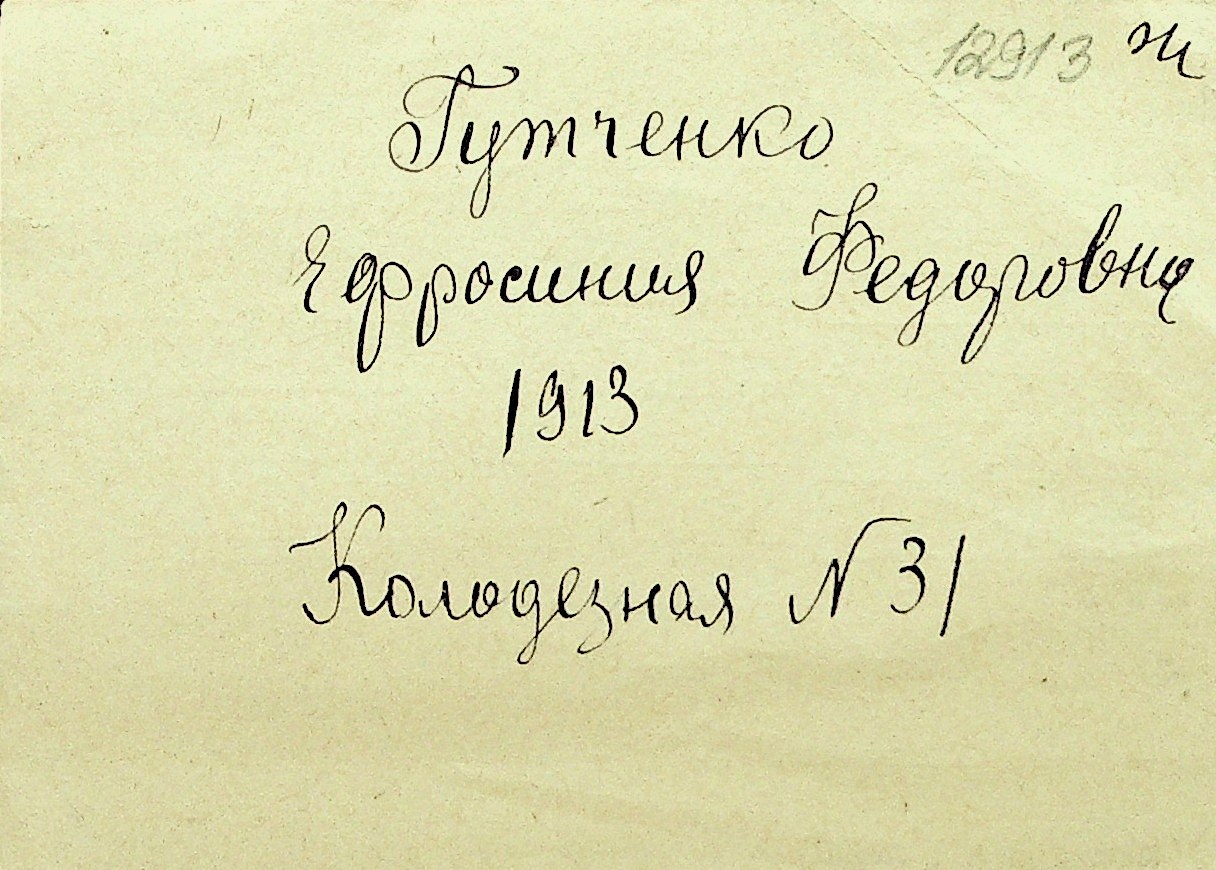 12913 ж
Гутченко
Ефросиния Федоровна
1913
Колодезная N 31